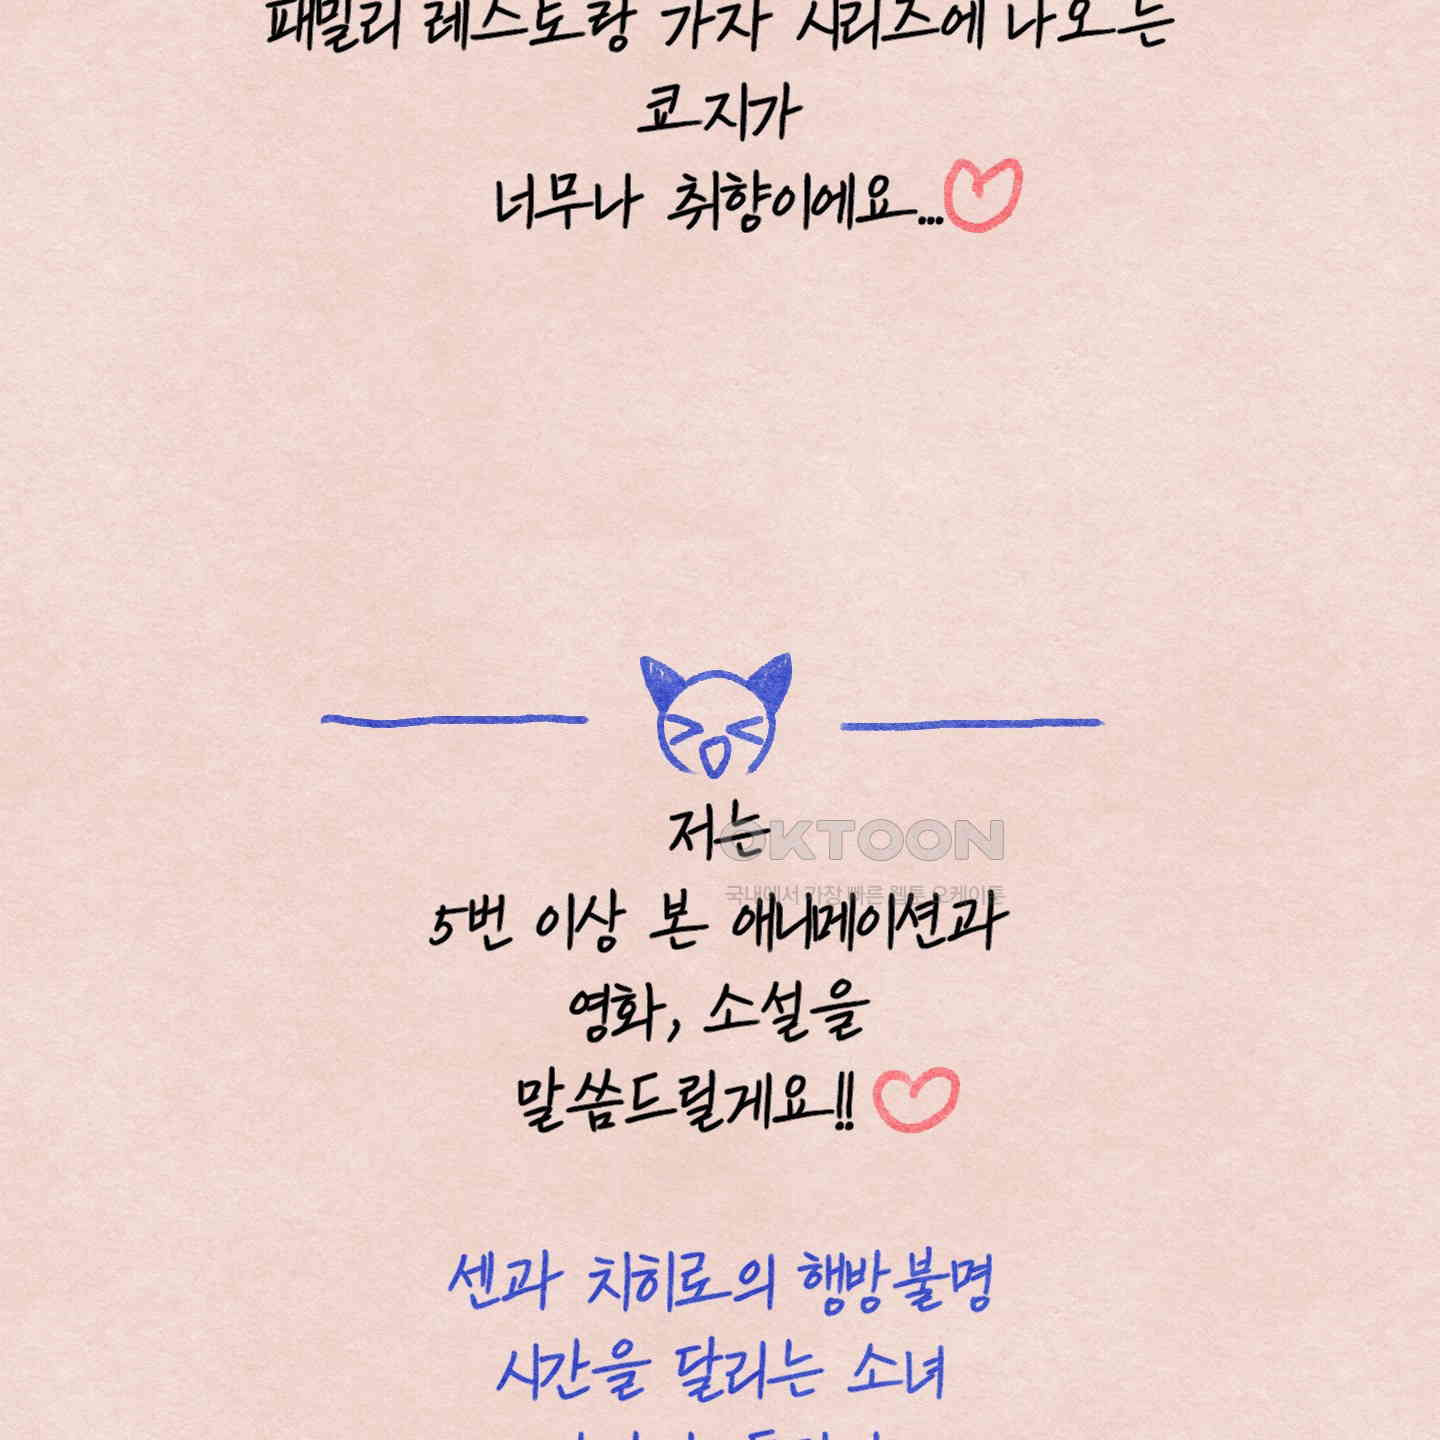 패밀리 레스토랑 가자 시리즈에 나오는
쿄지가
너무나 취향이에요...
저는
OKTOON
국내에서 가장 빠른 웹툰 오케이툰
5번 이상 본 애니메이션과
영화, 소설을
말씀드릴게요!!
센과 치히로의 행방불명
시간을 달리는 소녀